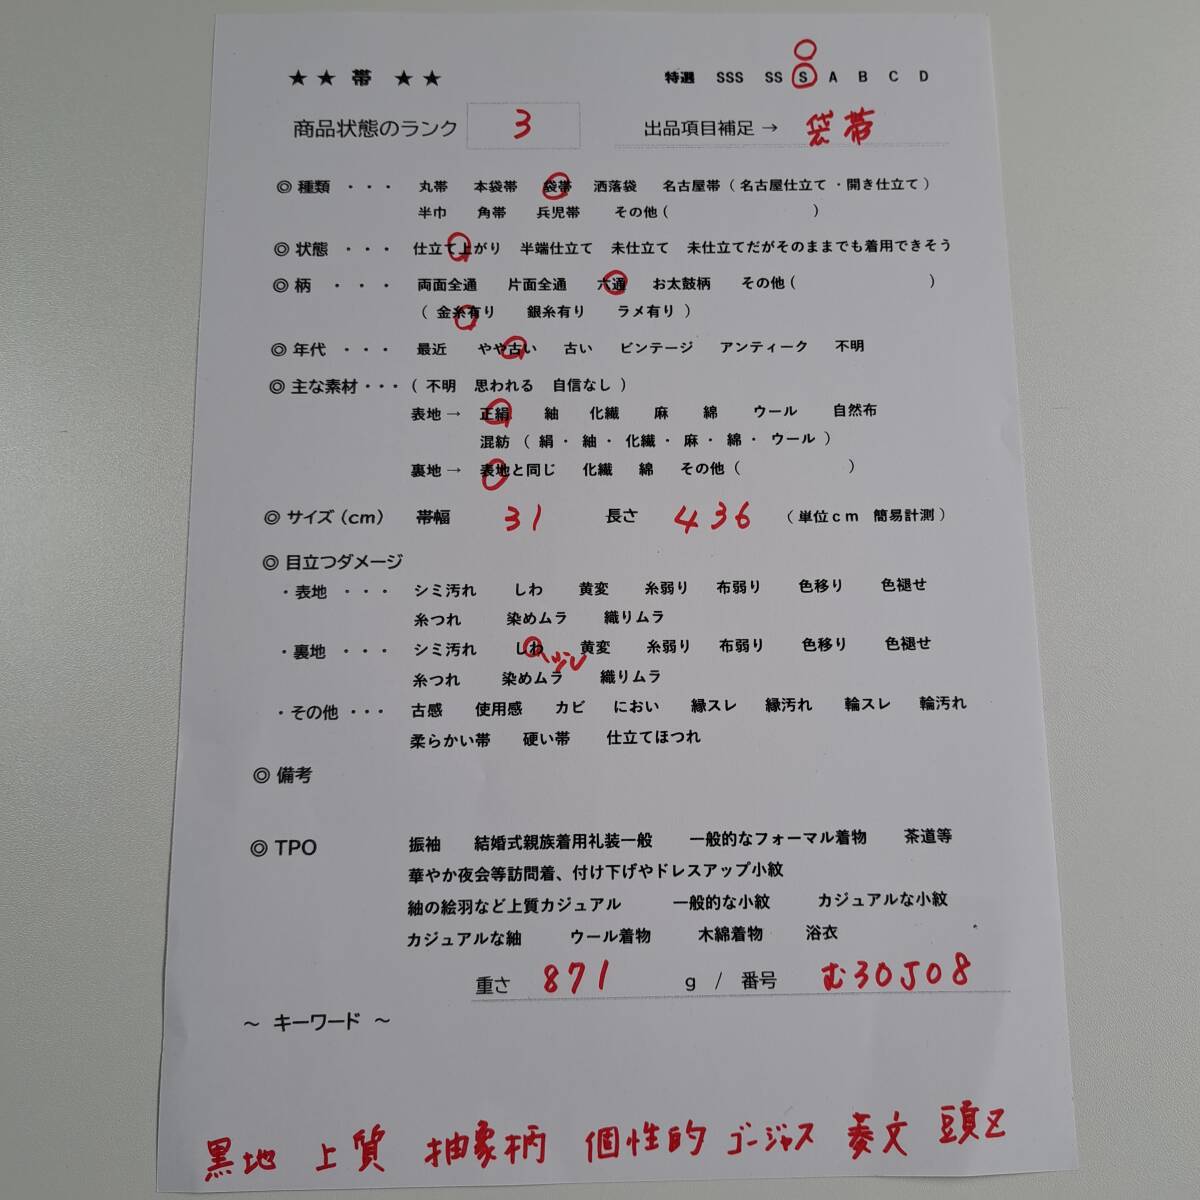 ★ ★ 帯 ★ ★ 特選 SSS SS S A B C D
商品状態のランク 3 出品項目補足 → 袋帯
◎ 種類 ・・・ 丸帯 本袋帯 袋帯 洒落袋 名古屋帯 ( 名古屋仕立て ・開き仕立て )
半巾 角帯 兵児帯 その他 ( )
◎ 状態 ・・・ 仕立て上がり 半端仕立て 未仕立て 未仕立てだがそのままでも着用できそう
◎ 柄 ・・・ 両面全通 片面全通 六通 お太鼓柄 その他 ( )
( 金糸有り 銀糸有り ラメ有り )
◎ 年代 ・・・ 最近 やや古い 古い ビンテージ アンティーク 不明
◎ 主な素材・・・ ( 不明 思われる 自信なし )
表地 → 正絹 紬 化繊 麻 綿 ウール 自然布
混紡 ( 絹・ 紬・ 化繊・ 麻・ 綿・ ウール )
裏地 → 表地と同じ 化繊 綿 その他 ( )
◎ サイズ (cm) 帯幅 31 長さ 436 ( 単位cm 簡易計測 )
◎ 目立つダメージ
・表地 ・・・ シミ汚れ しわ 黄変 糸弱り 布弱り 色移り 色褪せ
糸つれ 染めムラ 織りムラ
・裏地 ・・・ シミ汚れ しわ 黄変 糸弱り 布弱り 色移り 色褪せ
糸つれ 染めムラ 織りムラ
・その他 ・・・ 古感 使用感 カビ におい 縁スレ 縁汚れ 輪スレ 輪汚れ
柔らかい帯 硬い帯 仕立てほつれ
◎ 備考
◎ TPO 振袖 結婚式親族着用礼装一般 一般的なフォーマル着物 茶道等
華やか夜会等訪問着、付け下げやドレスアップ小紋
紬の絵羽など上質カジュアル 一般的な小紋 カジュアルな小紋
カジュアルな紬 ウール着物 木綿着物 浴衣
重さ 871 g / 番号 む30J08
～ キーワード ～
黒地 上質 抽象柄 個性的 ゴージャス 菱文